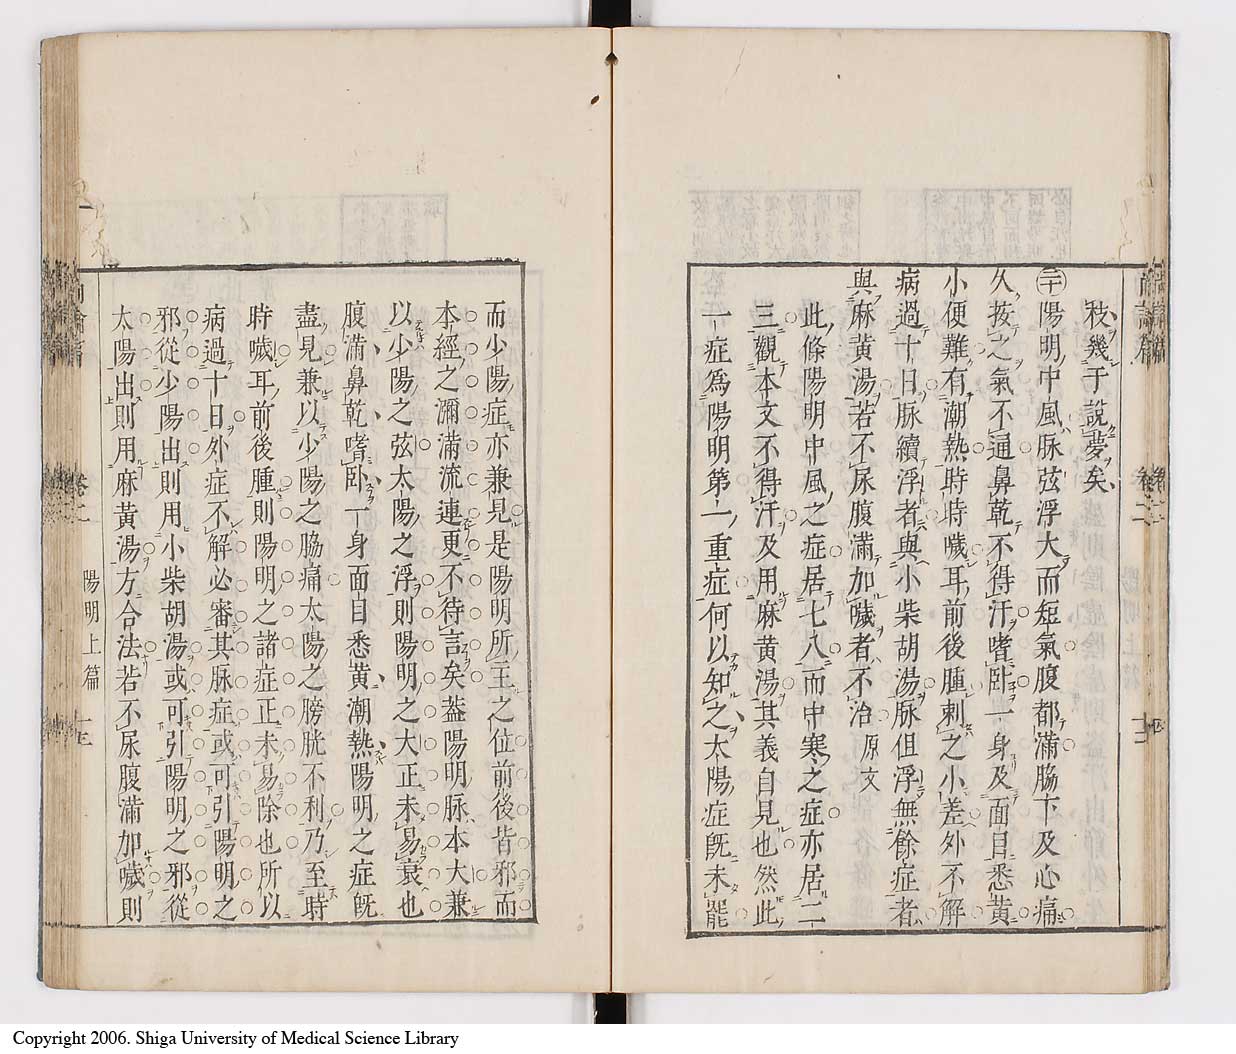 秇幾于說夢矣
二十陽明中風脉弦浮大而短氣腹都滿脇下及心痛
久按之氣不通鼻乾不得汗嗜卧一身及面目悉黃
小便難有潮熱時時噦耳前後腫刺之小差外不解
病過十日脉續浮者與小柴胡湯脉但浮無餘症者
與麻黃湯若不尿腹滿加噦者不治 原文
此條陽明中風之症居七八而中寒之症亦居二
三觀本文不得汗及用麻黃湯其義自見也然此
一症爲陽明第一重症何以知之太陽症旣未罷
而少陽症亦兼見是陽明所主之位前後皆邪而
本經之瀰滿流連更不待言矣葢陽明脉本大兼
以少陽之弦太陽之浮則陽明之大正未易衰也
腹滿鼻乾嗜卧一身面目悉黃潮熱陽明之症旣
盡見兼以少陽之脇痛太陽之膀胱不利乃至時
時噦耳前後腫則陽明之諸症正未易除也所以
病過十日外症不解必審其脉症或可引陽明之
邪從少陽出則用小柴胡湯或可引陽明之邪從
太陽出則用麻黃湯方合法若不尿腹滿加噦則
卷二
陽明上篇
十三
Copyright 2006. Shiga University of Medical Science Library